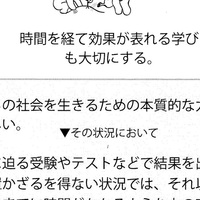 時間を経て効果が表れる学び
も大切にする。
の社会を生きるための本質的な
い。
▼その状況において
迫る受験やテストなどで結果を出
かざるを得ない状況では、それ以